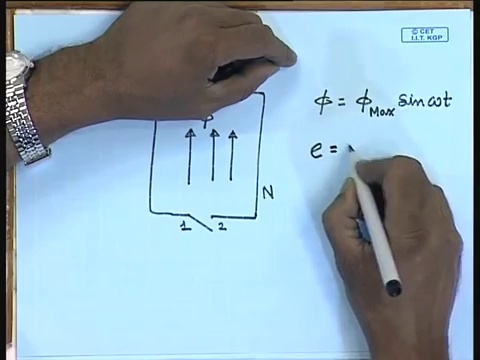 © CET
I.I.T. KGP
ϕ = ϕ_Max sin ωt
e =
N
1 2